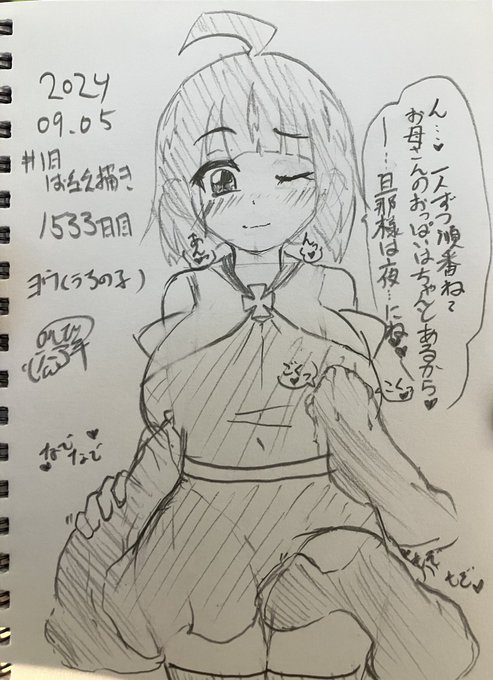 2024
09.05
#1日
1533日目
ヨウ(うろの子)
なで
なで
あんっ♥
んっ♥
ごくっ♥
ごくっ♥
ん…♥一人ずつ順番ね♥
お母さんのおっぱいはちゃんとあるから♥
ー…旦那様は夜…にね♥